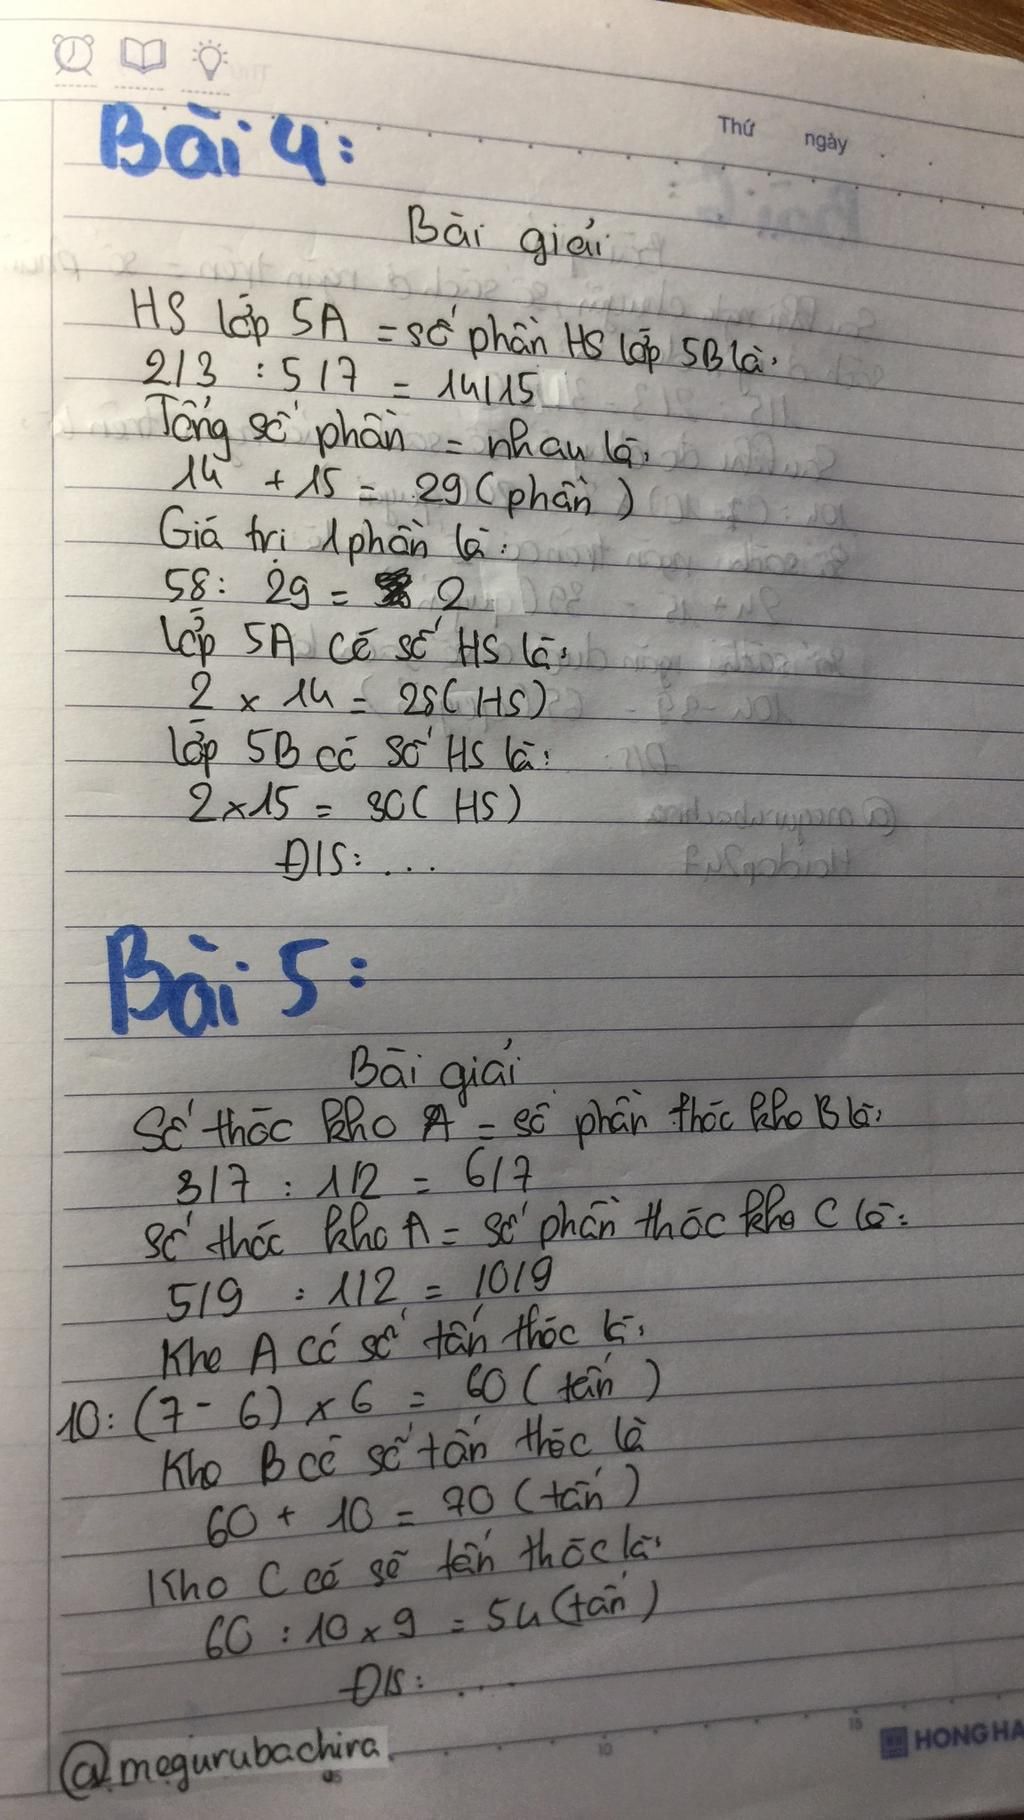 Thứ ngày
Bài 4:
Bài giải
HS lớp 5A = số phần HS lớp 5B là:
2/3 : 5/7 = 14/15
Tổng số phần = nhau là:
14 + 15 = 29 (phần)
Giá trị 1 phần là:
58 : 29 = 2
Lớp 5A có số HS là:
2 x 14 = 28 (HS)
Lớp 5B có số HS là:
2 x 15 = 30 (HS)
Đ/S: ...
Bài 5:
Bài giải
Số thóc kho A = số phần thóc kho B là:
3/7 : 1/2 = 6/7
Số thóc kho A = số phần thóc kho C là:
5/9 : 1/2 = 10/9
Kho A có số tấn thóc là:
10 : (7 - 6) x 6 = 60 (tấn)
Kho B có số tấn thóc là
60 + 10 = 70 (tấn)
Kho C có số tấn thóc là:
60 : 10 x 9 = 54 (tấn)
Đ/S: ....
@megurubachira
05 10 15 HONG HA